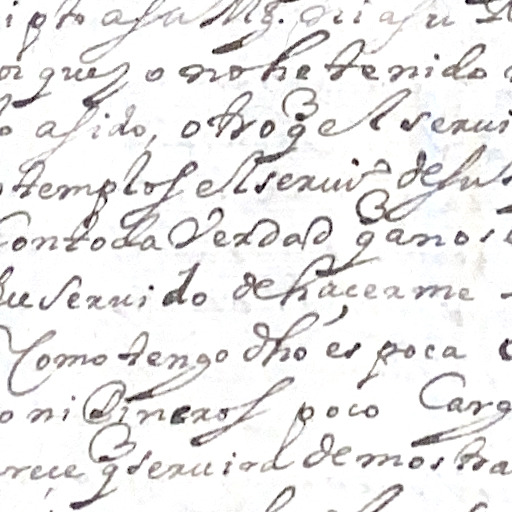 ipto a su Mg.d ni a su
orque yo no he tenido
o a sido, otro q el serui
templos el seruir de su
Con toda Verdad q a nos
su seruido de hacerme
Como tengo dho es poca
o ni Dineros poco Carg
rece q seruira demostra